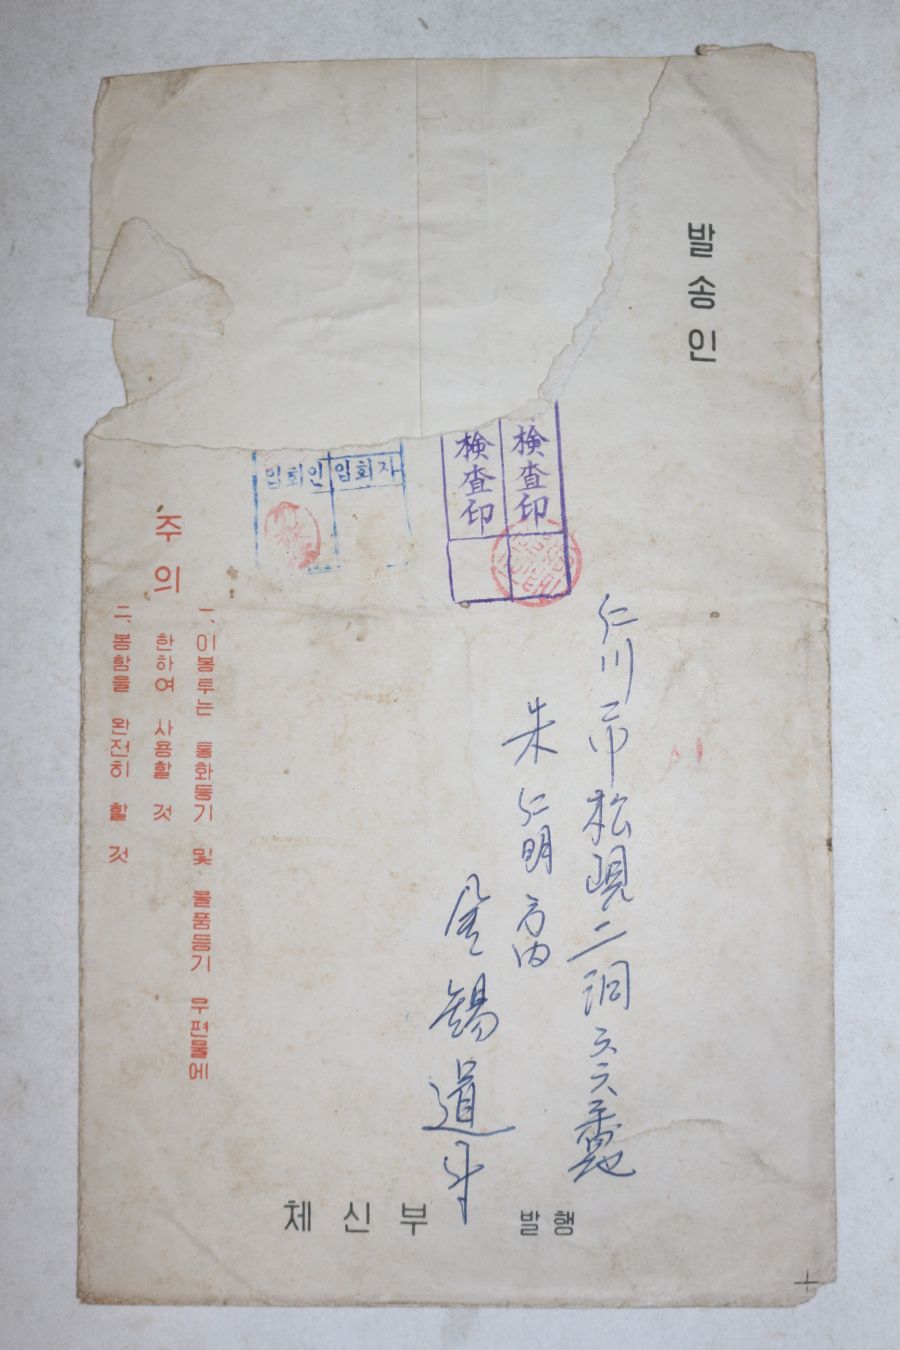 발송인
檢査印
檢査印
입회인 입회자
仁川市 松峴二洞 六六番地
朱仁明 方內
金錫道
주의
一, 이봉투는 통화등기 및 물품등기 우편물에
한하여 사용할 것
二, 봉함을 완전히 할 것
체신부 발행